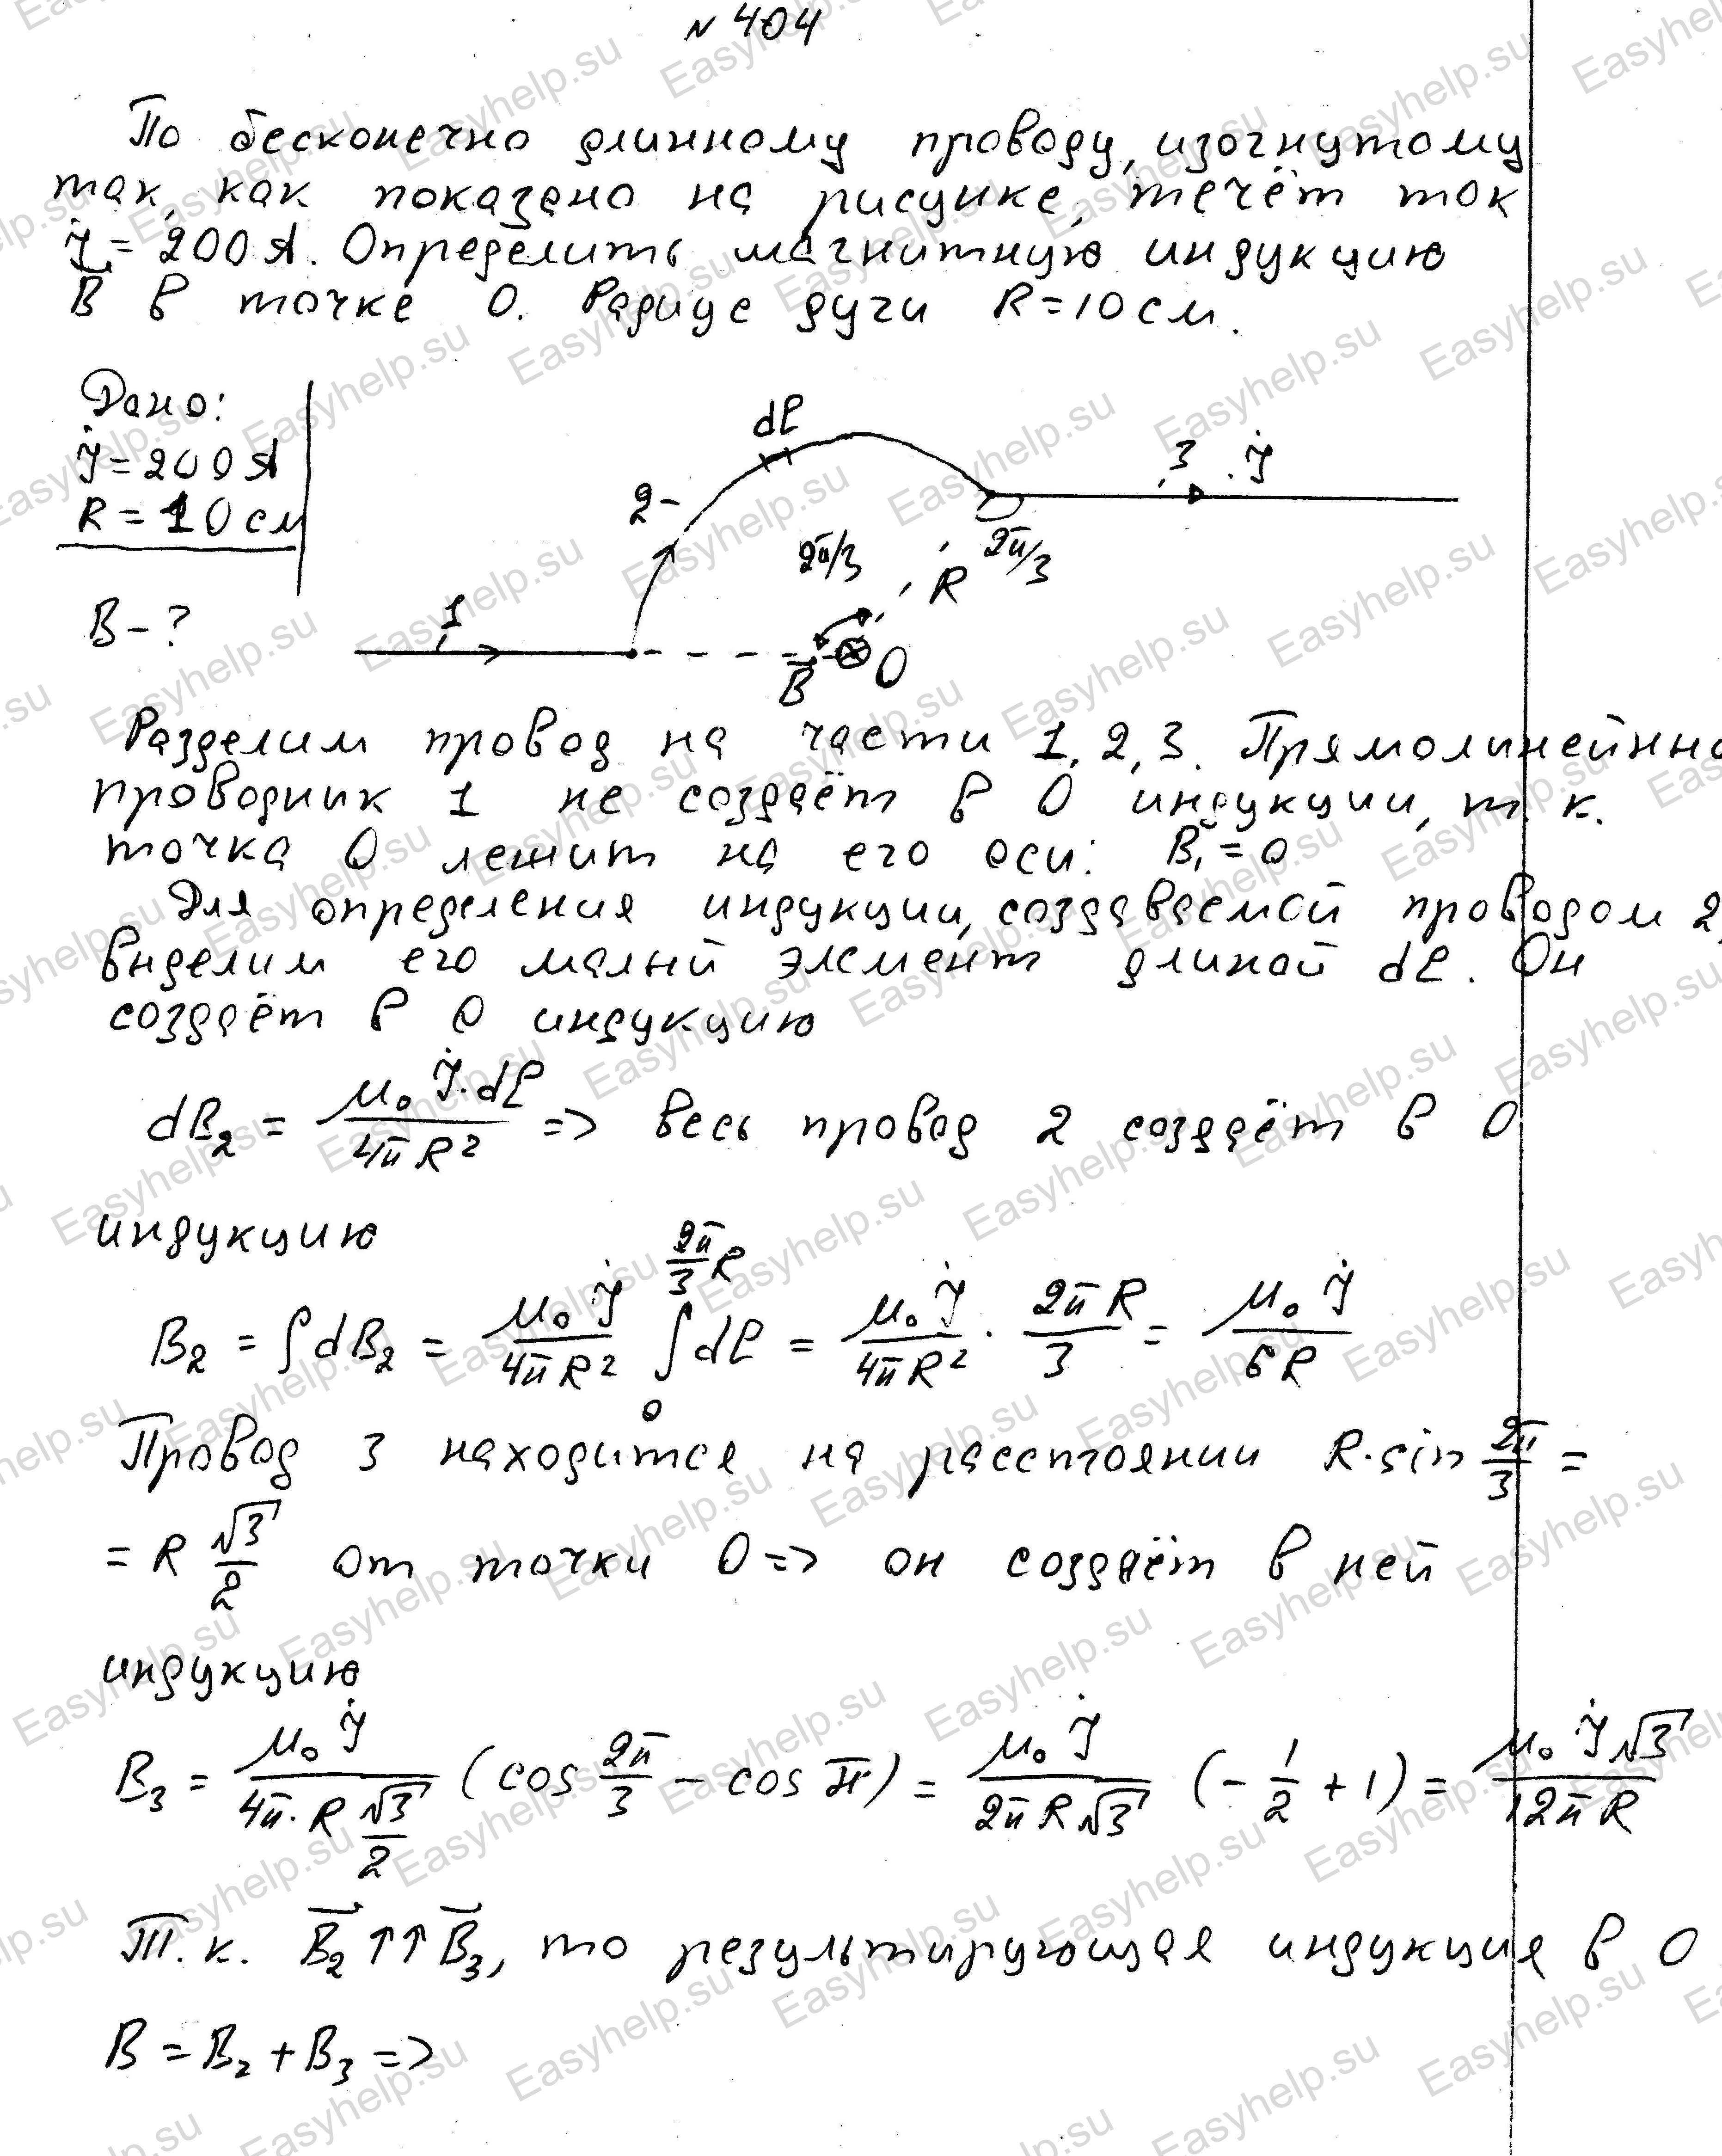 N 404
По бесконечно длинному проводу, изогнутому
так, как показано на рисунке, течёт ток
I = 200 A. Определить магнитную индукцию
B в точке O. Радиус дуги R = 10 см.
Дано:
I = 200 A
R = 10 см
B - ?
dl
2
3
I
2π/3
R
2π/3
1
B
O
Разделим провод на части 1, 2, 3. Прямолинейны
проводник 1 не создаёт в O индукции, т. к.
точка O лежит на его оси: B₁ = 0
Для определения индукции, создаваемой проводом 2,
выделим его малый элемент длиной dl. Он
создаёт в O индукцию
dB₂ = μ₀ I·dl / 4πR² => весь провод 2 создаёт в O
индукцию
B₂ = ∫dB₂ = μ₀ I / 4πR² ∫₀^(2π/3 R) dl = μ₀ I / 4πR² · 2πR / 3 = μ₀ I / 6R
Провод 3 находится на расстоянии R·sin 2π/3 =
= R √3/2 от точки O => он создаёт в ней
индукцию
B₃ = μ₀ I / (4π·R √3/2) (cos 2π/3 - cos π) = μ₀ I / 2πR√3 (-1/2 + 1) = μ₀ I√3 / 12πR
Т. к. B₂ ↑↑ B₃, то результирующая индукция в O
B = B₂ + B₃ =>
Easyhelp.su